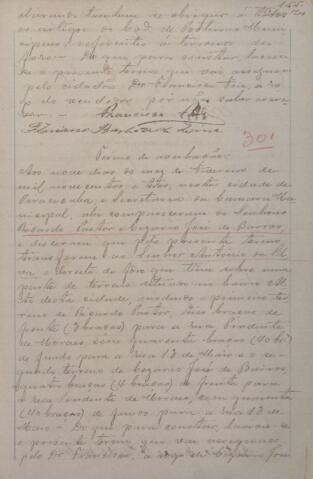 155
os artigos do Cod. de Posturas Muni-
cipaes, referentes a terrenos de
foro. — Do que para constar, lavrou-se
o presente termo que vai assignado
pelo cidadão Dr. Francisco
rogo do vendedor por não saber escre-
ver. — Francisco
Floriano
301
Termo de
Aos nove dias do mez de Fevereiro de
mil novecentos e, nesta cidade de
Piracicaba, e Secretaria da Camara Mu-
nicipal, ahi compareceram os Senhores
Ricardo Pastor e Cezario José de Barros,
e disseram que pelo presente termo
transferem ao Senhor Antonio da Sil-
va o direito de foro que tem sobre uma
parte de terreno situado no bairro Al-
to desta cidade, medindo o primeiro ter-
reno de Ricardo Pastor, tres braças de
frente (3 braças) para a rua Prudente
de Moraes, com quarenta braças (40 br.)
de fundo para a rua 13 de Maio e o se-
gundo terreno de Cezario José de Barros,
quatro braças (4 braças) de frente para
a rua Prudente de Moraes, com quarenta
(40 braças) de fundo para a rua 13 de
Maio. — Do que para constar, lavrou-se
o presente termo que vai assignado
pelo Dr. Francisco a rogo de Cezario José